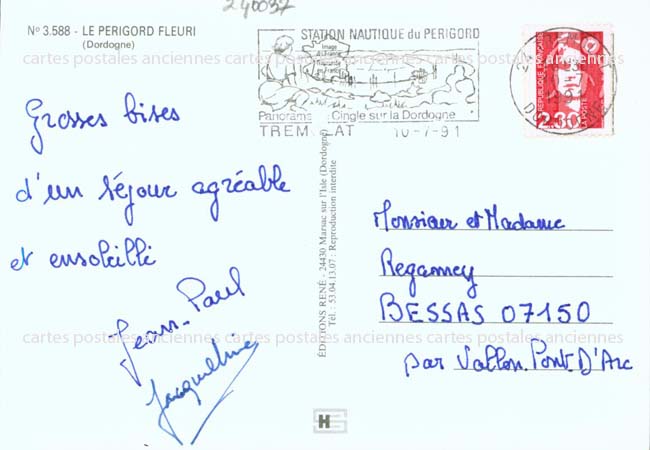 240037
Nº 3.588 - LE PERIGORD FLEURI
(Dordogne)
STATION NAUTIQUE du PERIGORD
Panorama Cingle sur la Dordogne
TREMOLAT 10-7-91
REPUBLIQUE FRANÇAISE
2.30
LA POSTE
cartes postales anciennes cartes postales anciennes cartes postales anciennes
Grosses bises
d'un séjour agréable
et ensoleillé
Jean-Paul
Jacqueline
EDITIONS RENÉ - 24430 Marsac sur l'Isle (Dordogne)
Tél.: 53.04.13.07 : Reproduction interdite
Monsieur et Madame
Regamey
BESSAS 07150
par Vallon.Pont D'Arc
cartes postales anciennes cartes postales anciennes cartes postales anciennes